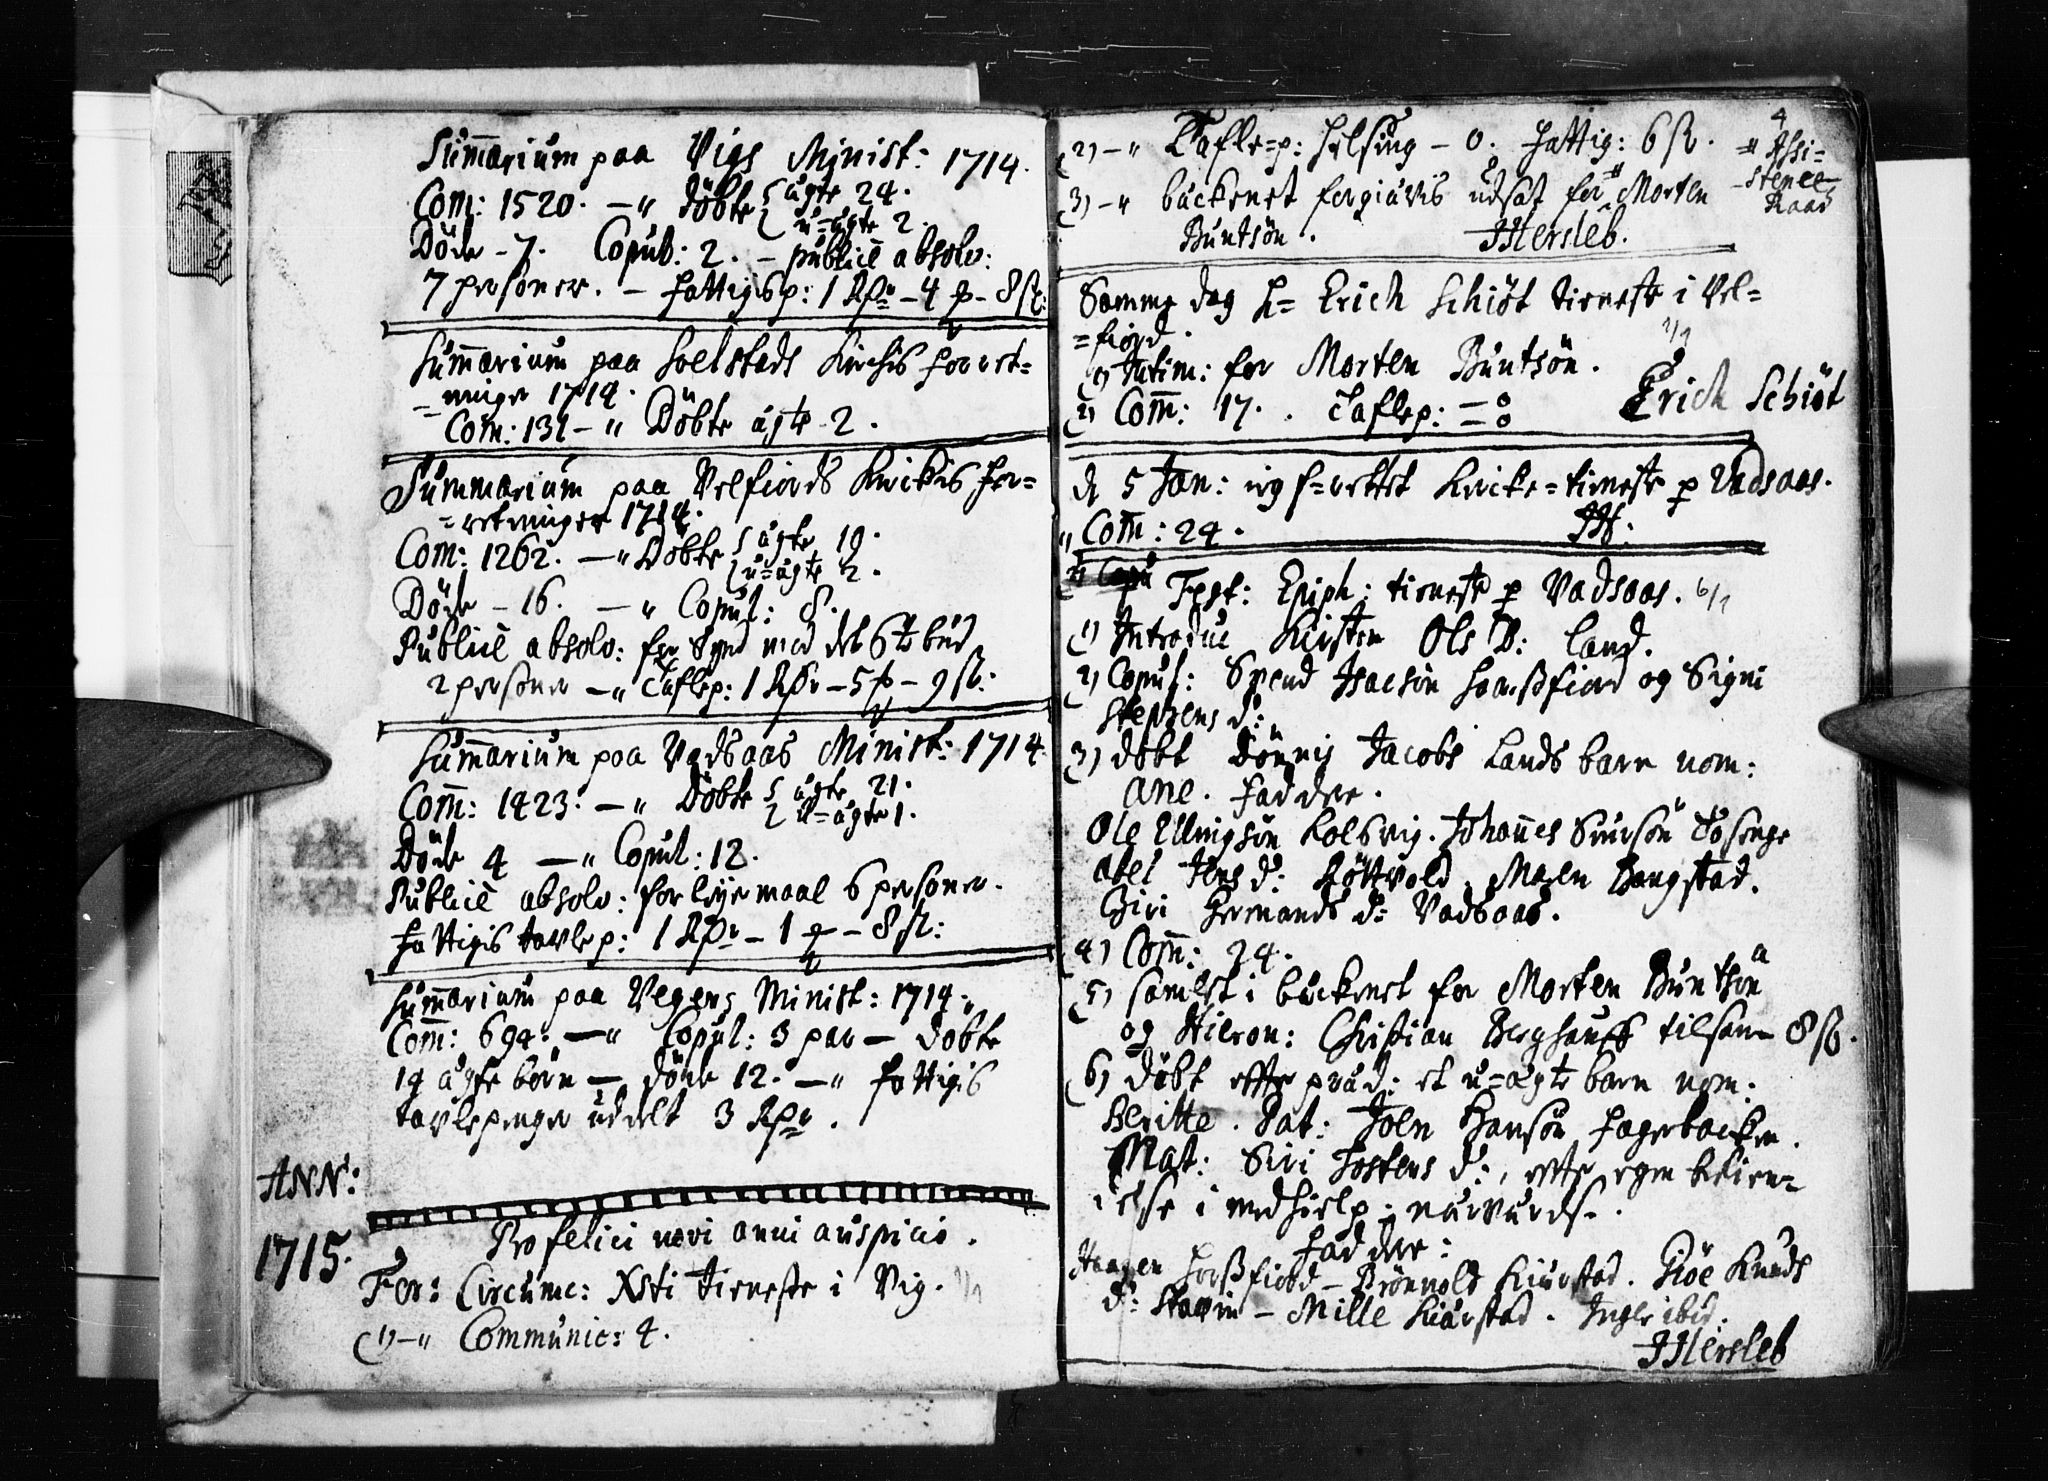 Summarium paa Vigs Minist: 1714.
Com: 1520. — „ Döbte { ägte 24.
{ u=ägte 2.
Döde - 7. Copul: 2. — publicè absolv:
7 personer. — fattigisp: 1 Rdr — 4 — 8 sk:
Summarium paa Solstads Kirchis forret=
=ninger 1714.
Com: 131 — „ Döbte ägte 2.
Summarium paa Velfiords Kirckis for=
=retninger 1714.
Com: 1262. — „ Döbte { ägte 19.
{ u=ägte 2.
Döde — 16. — „ Copul: 8.
Publicè absolv: for Synd mod det 6te bud
2 personer — „ Taflep: 1 Rdr — 5 — 9 sk:
Summarium paa Vadsaas Minist: 1714.
Com̄: 1423. — „ Döbte { ägte 21.
{ u=ägte 1.
Döde 4 — „ Copul: 12.
Publicè absolv: for leyermaal 6 personer.
fattigis tavlep: 1 Rdr — 1 — 8 sk:
Summarium paa Vegens Minist: 1714.
Com̄: 694. — „ Copul: 3 par — Döbte
14 ägte börn — döde 12. — „ fattigis
tavlepenger uddelt 3 Rdr.
ANN:
1715.
Pro felici novi anni auspicio.
Fer: Circumc: Xsti tieneste i Vig. 1/1
(1) — „ Communic: 4.
4
(2) — „ Tafle=p: — 0. fattig: 6 sk.
(3) — „ beckenet udsat for # Morten
Buntsön. JHersleb.
# Assi=
stence
Raad
Samme dag H= Erich Schiöt tieneste i Vel=
=fiord. 1/1
1) Intim: for Morten Buntsön.
2) Com̄: 17. Taflep: — 0
— 0
Erich Schiöt
d 5 Jan: Kircke=tieneste p Vadsaas.
„ Com̄: 24. JH:
Fest: Epiph: tieneste p Vadsaas. 6/1
(1) Introduc Kirsten Ols D: Land.
2) Copul: Svend Isacsön og Signi
Stephens d:
3) döbt Dönnis Jacobs Lands barn nom:
ane. Faddre.
Ole Ellingsön Kolsvig. Johannes Siursön Tosenge
Abel Jens d: Röttvold. Maren Bangstad.
Giri Hermands d: Vadsaas.
4) Com̄: 24.
(5) samlet i beckenet for Morten Buntsön
og Hieron: Christian Berghauss tilsam̄ 8 sk.
6) döbt effter präd: et u=ägte barn nom:
Beritte. Pat: Joen Hansön Fagerbacken.
Mat: Siri d:, effter egen bekien=
delse i nödhielp
Faddre:
Haagen Horsfiord — Brönnold Kiärstad. Röe Knuds
d: — Mille Kiärstad. Inger ibid:
JHersleb